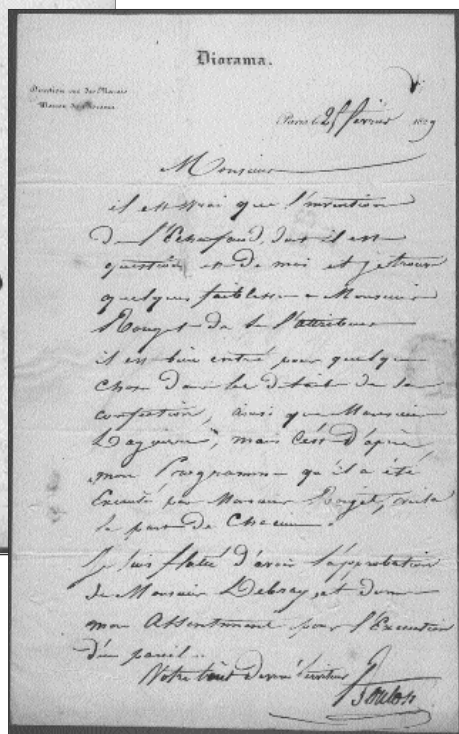 Diorama.
Direction rue des Marais
Paris le 25 février 1829
Monsieur
il est vrai que l'invention
de l'Echafaud, dont il est
question est de moi et je trouve
quelques faiblesse a Monsieur
Rouget de se l'attribuer
il est bien entré pour quelque
chose dans les détails de la
confection, ainsi que Monsieur
mais c'est d'après
mon Programme qu'il a été
Executé par Monsieur Rouget, voila
la part de Chacun.
Je suis flatté d'avoir l'approbation
de Monsieur Debray, et donne
mon Assentiment pour l'Execution
d'un pareil.
Votre tout dévoué Serviteur